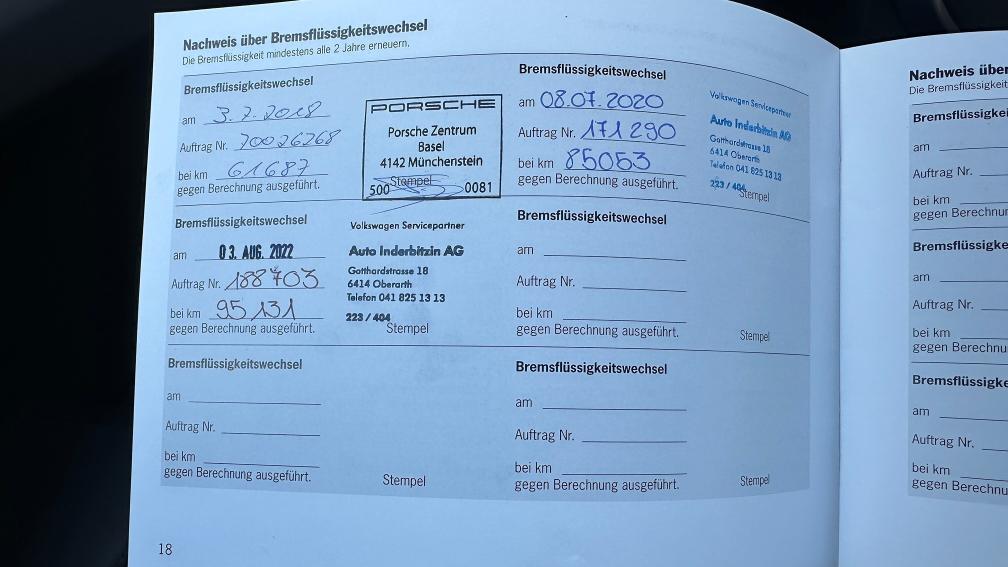 Nachweis über Bremsflüssigkeitswechsel
Die Bremsflüssigkeit mindestens alle 2 Jahre erneuern.
Bremsflüssigkeitswechsel
am 3.7.2018
Auftrag Nr. 70026268
bei km 61687
gegen Berechnung ausgeführt.
PORSCHE
Porsche Zentrum
Basel
4142 Münchenstein
Stempel
500 0081
Bremsflüssigkeitswechsel
am 08.07.2020
Auftrag Nr. 171290
bei km 85053
gegen Berechnung ausgeführt.
Volkswagen Servicepartner
Auto Inderbitzin AG
Gotthardstrasse 18
6414 Oberarth
Telefon 041 825 13 13
223 / 404
Stempel
Bremsflüssigkeitswechsel
am 03. AUG. 2022
Auftrag Nr. 188703
bei km 95131
gegen Berechnung ausgeführt.
Volkswagen Servicepartner
Auto Inderbitzin AG
Gotthardstrasse 18
6414 Oberarth
Telefon 041 825 13 13
223 / 404
Stempel
Bremsflüssigkeitswechsel
am
Auftrag Nr.
bei km
gegen Berechnung ausgeführt.
Stempel
Bremsflüssigkeitswechsel
am
Auftrag Nr.
bei km
gegen Berechnung ausgeführt.
Stempel
Bremsflüssigkeitswechsel
am
Auftrag Nr.
bei km
gegen Berechnung ausgeführt.
Stempel
18
Nachweis über
Die Bremsflüssigkeit
Bremsflüssigkei
am
Auftrag Nr.
bei km
gegen Berechnu
Bremsflüssigke
am
Auftrag Nr.
bei km
gegen Berechnu
Bremsflüssigke
am
Auftrag Nr.
bei km
gegen Berechnu